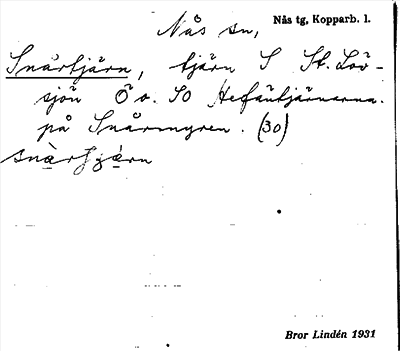 Nås sn, Nås tg, Kopparb. l.
Snårtjärn, tjärn S St. Löv-
sjön Ö o. SO Hefäutjärnarna.
på Snårmyren. (30)
snårtjärn
Bror Lindén 1931